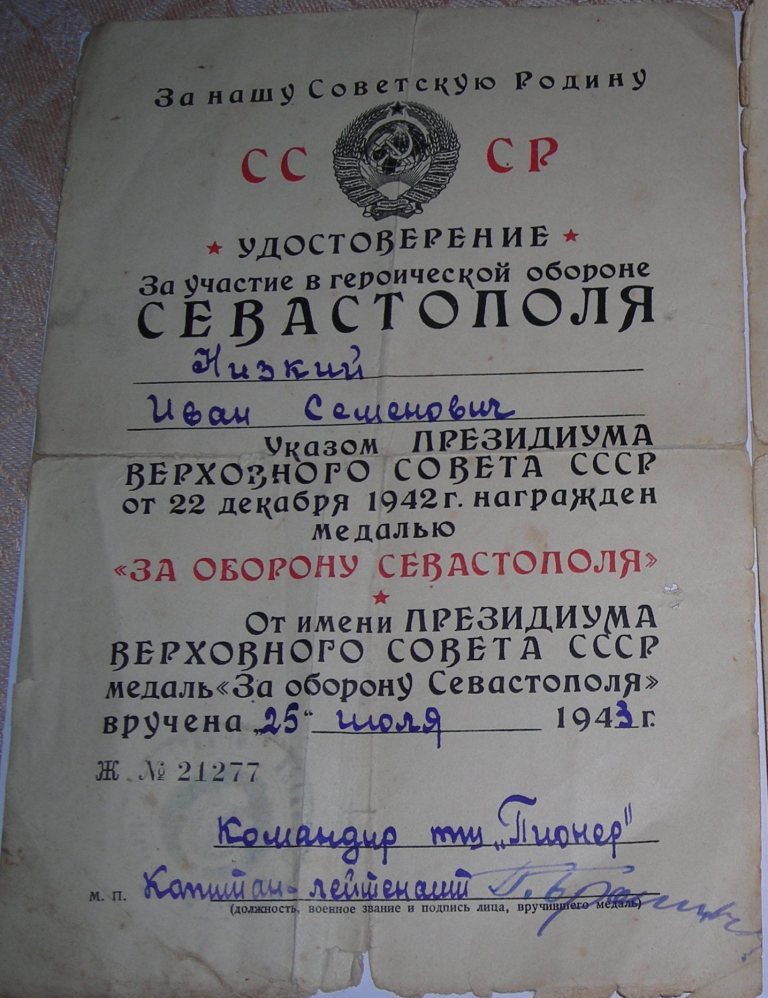 За нашу Советскую Родину
СССР
УДОСТОВЕРЕНИЕ
За участие в героической обороне
СЕВАСТОПОЛЯ
Низкий
Иван Семенович
Указом ПРЕЗИДИУМА
ВЕРХОВНОГО СОВЕТА СССР
от 22 декабря 1942 г. награжден
медалью
«ЗА ОБОРОНУ СЕВАСТОПОЛЯ»
От имени ПРЕЗИДИУМА
ВЕРХОВНОГО СОВЕТА СССР
медаль «За оборону Севастополя»
вручена „25“ июля 1943 г.
Ж № 21277
Командир тщ „Пионер"
м. п. Капитан-лейтенант
(должность, военное звание и подпись лица, вручившего медаль)